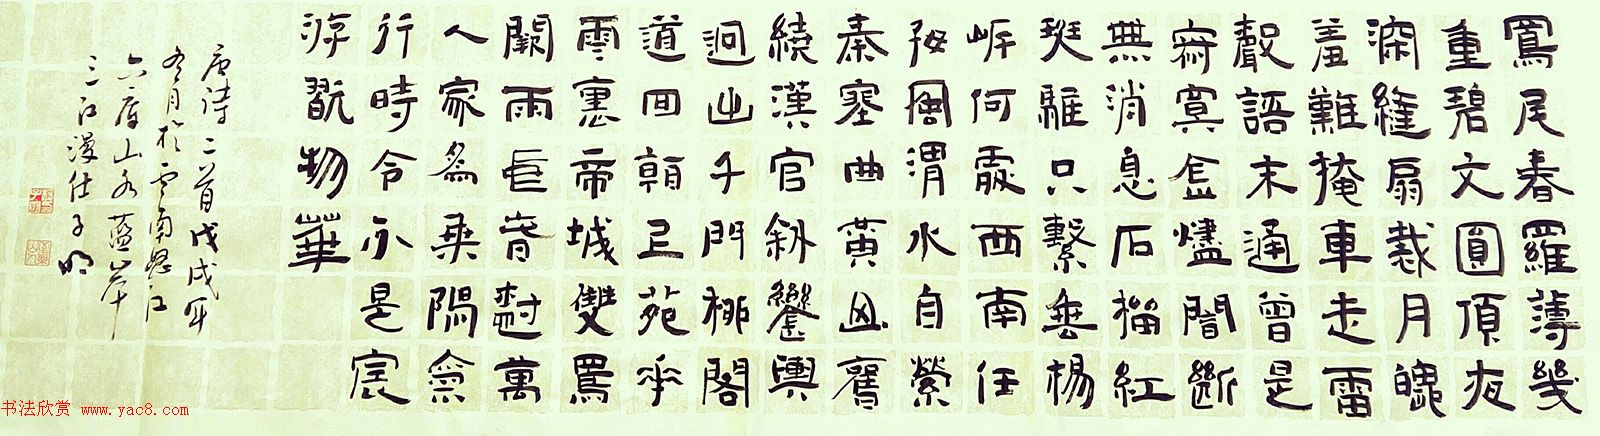 鳳尾春羅薄幾
重碧文圓頂夜
深縫扇裁月魄
羞難掩車走雷
聲語末通曾是
寂寞金燼闇斷
無消息石榴紅
斑騅只繫垂楊
岸何處西南任
好風渭水自縈
秦塞曲黃山舊
繞漢宮斜鑾輿
迥出千門柳閣
道回上苑花
雲裏帝城雙鳳
闕雨中春樹萬
人家為乘陽氣
行時令不是宸
游翫物華
唐詩二首戊戌年
冬月於雲南怒江
六庫山水藍岸
三江漫仕子明
书法欣赏 www.yac8.com